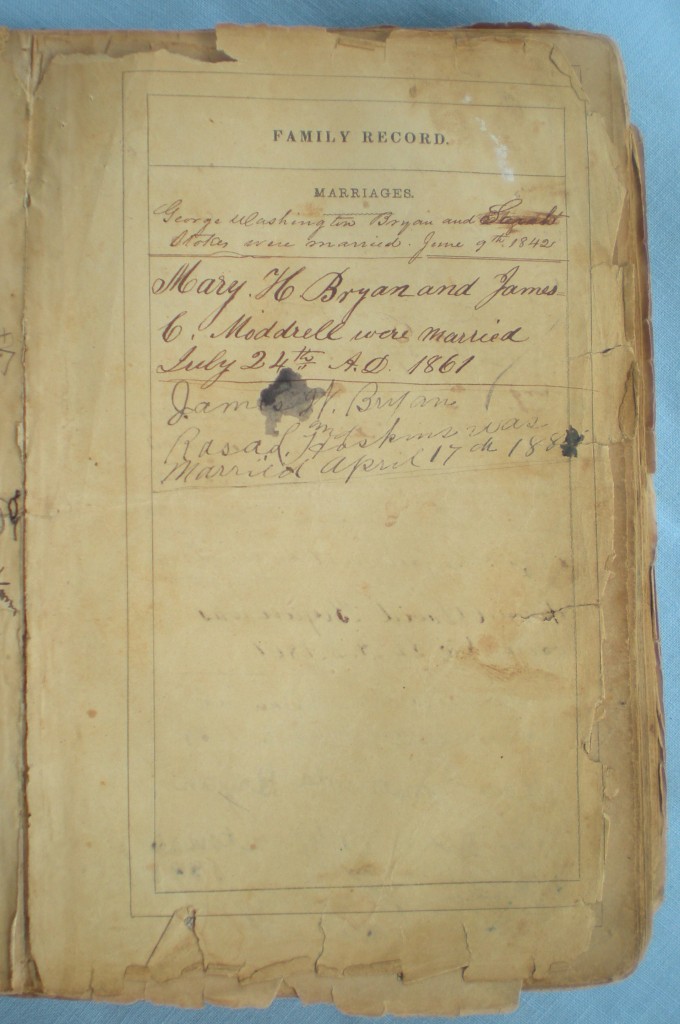 FAMILY RECORD.
MARRIAGES.
George Washington Bryan and
Stokes were married. June 9th 1842
Mary. H Bryan and James
C. Moddrell were married
July 24th A.D. 1861
James W. Bryan
Rosa L. Hoskins was
Married April 17th 188